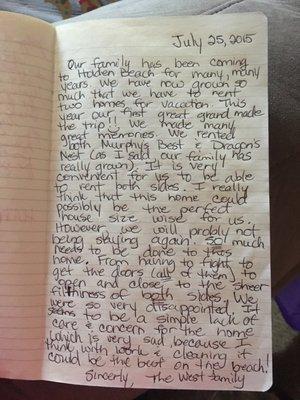 July 25, 2015
Our family has been coming
to Holden Beach for many, many
years. We have now grown so
much that we have to rent
two homes for vacation. This
year our first great grand made
the trip!! We made many
great memories. We rented
both Murphy's Best & Dragon's
Nest (as I said our family has
really grown). It is very
convenient for us to be able
to rent both sides. I really
think that this home could
possibly be the perfect
house size wise for us.
However we will probly not
being staying again. So much
needs to be done to this
home. From having to fight to
get the doors (all of them) to
open and close to the sheer
filthiness of both sides. We
were so very disappointed. It
seems to be a simple lack of
care & concern for the home
which is very sad because I
think with work & cleaning it
could be the best on the beach!
Sincerly, The West family